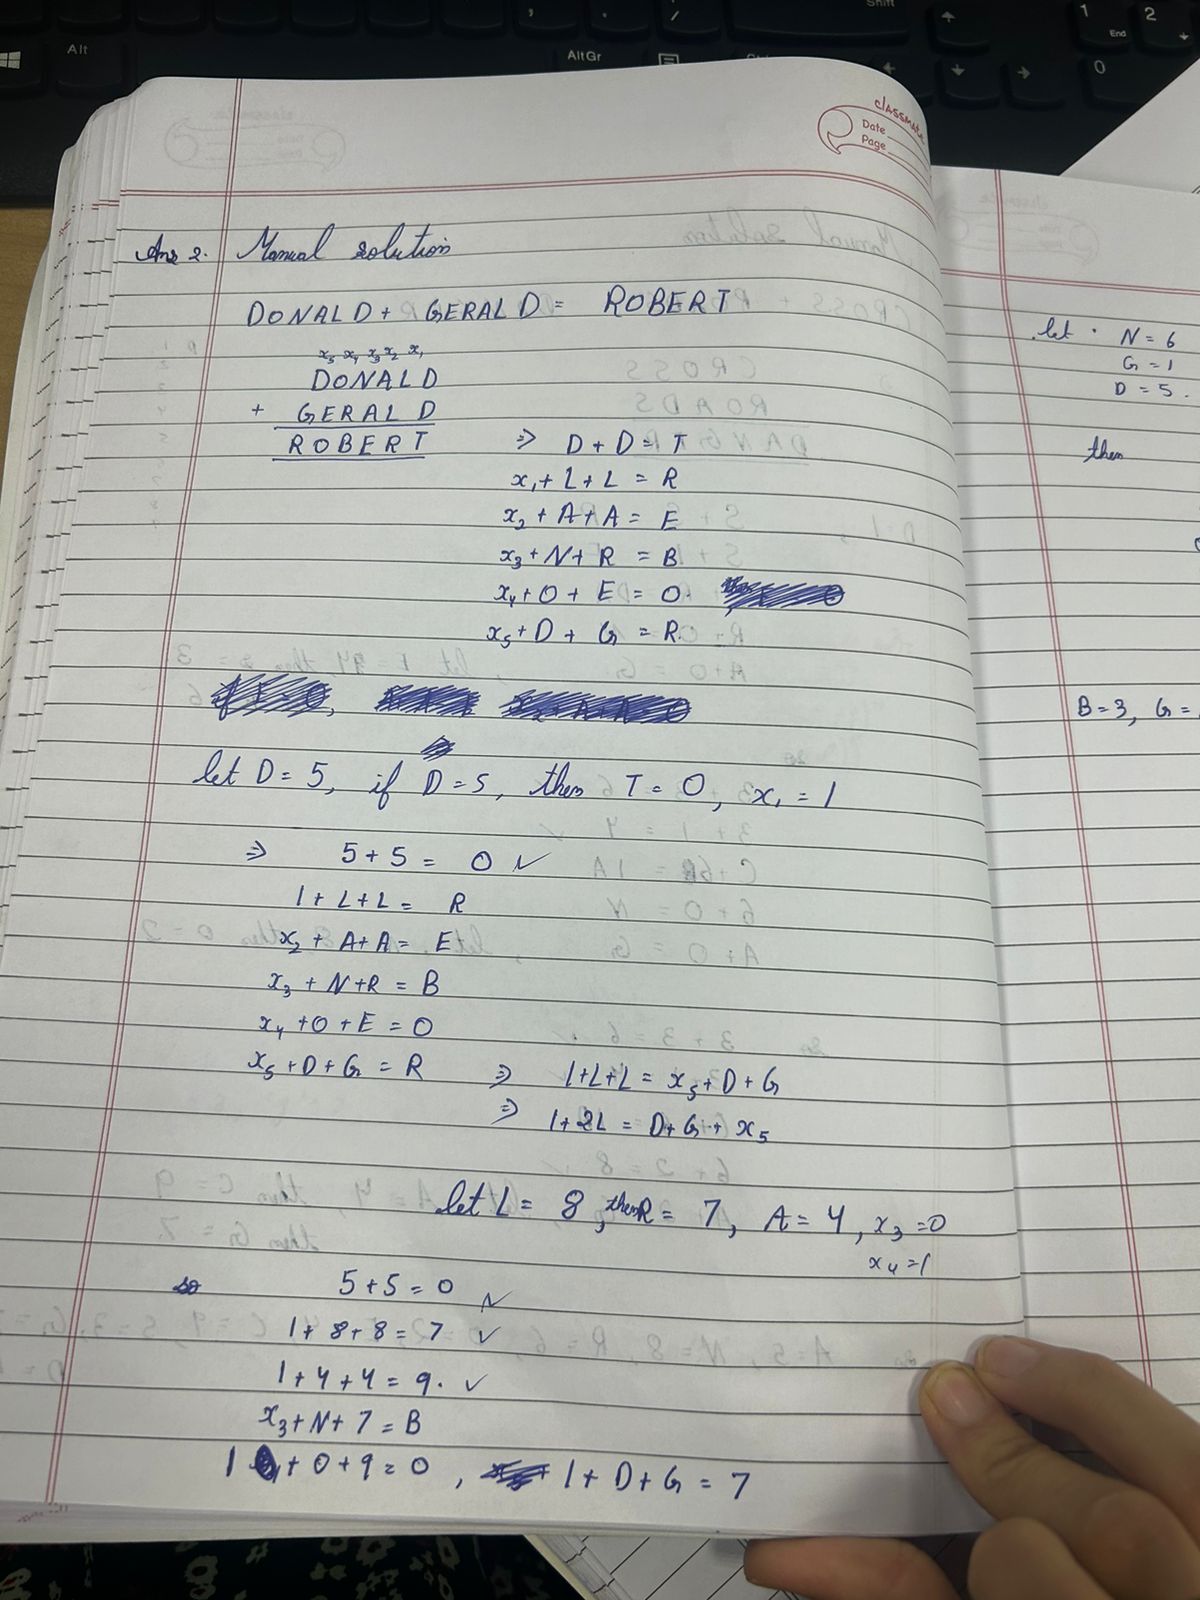 classmate
Date
Page
Ans 2. Manual solution
DONALD + GERALD = ROBERT
x₅ x₄ x₃ x₂ x₁
DONALD
+ GERALD
ROBERT ⇒ D + D = T
x₁ + L + L = R
x₂ + A + A = E
x₃ + N + R = B
x₄ + O + E = O
x₅ + D + G = R
let D = 5, if D = 5, then T = 0, x₁ = 1
⇒ 5 + 5 = 0 ✓
1 + L + L = R
x₂ + A + A = E
x₃ + N + R = B
x₄ + O + E = O
x₅ + D + G = R ⇒ 1 + L + L = x₅ + D + G
⇒ 1 + 2L = D + G + x₅
let L = 8, then R = 7, A = 4, x₃ = 0
x₄ = 1
so 5 + 5 = 0 ✓
1 + 8 + 8 = 7 ✓
1 + 4 + 4 = 9. ✓
x₃ + N + 7 = B
1 + O + 9 = O , 1 + D + G = 7
let N = 6
G = 1
D = 5.
then
B = 3, G =
Alt
AltGr
Shift
1
End
2
0